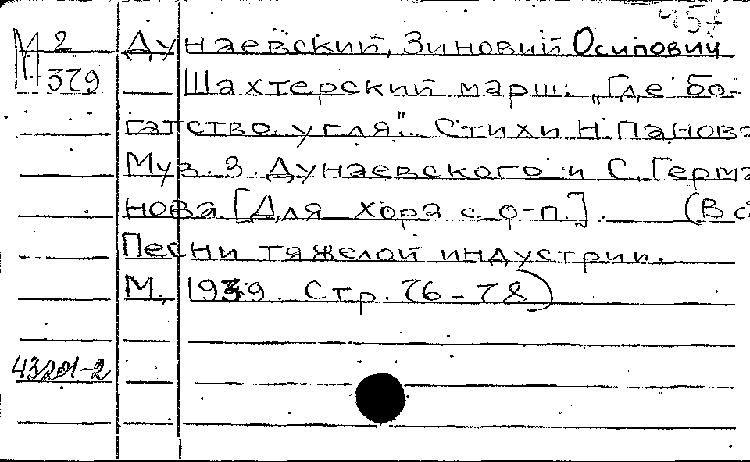 457
М 2 Дунаевский, Зиновий Осипович
П 379 Шахтерский марш: „Где бо-
гатство угля". Стихи Н. Панова
Муз. З. Дунаевского и С. Герма
нова. [Для хора с ф-п.]. (В с
Песни тяжелой индустрии.
М, 1939. Стр. 76-78)
43201-2